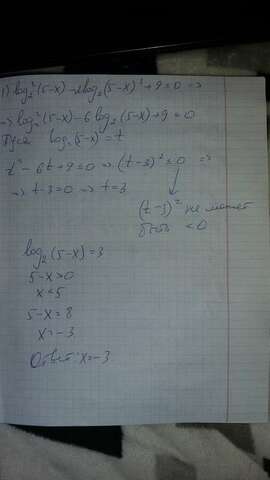 1) log₂²(5-x) - 2log₂(5-x)³ + 9 = 0 ⇒
⇒ log₂²(5-x) - 6 log₂(5-x) + 9 = 0
Пусть log₂(5-x) = t
t² - 6t + 9 = 0 ⇒ (t-3)² = 0 ⇒
⇒ t-3=0 ⇒ t=3
(t-3)² не может
быть <0
log₂(5-x) = 3
5-x>0
x<5
5-x=8
x=-3
Ответ: x=-3